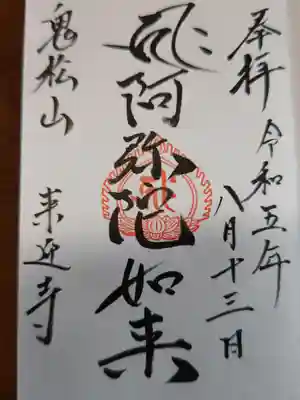 奉拝 令和五年
八月十三日
阿弥陀如来
鬼松山 来迎寺